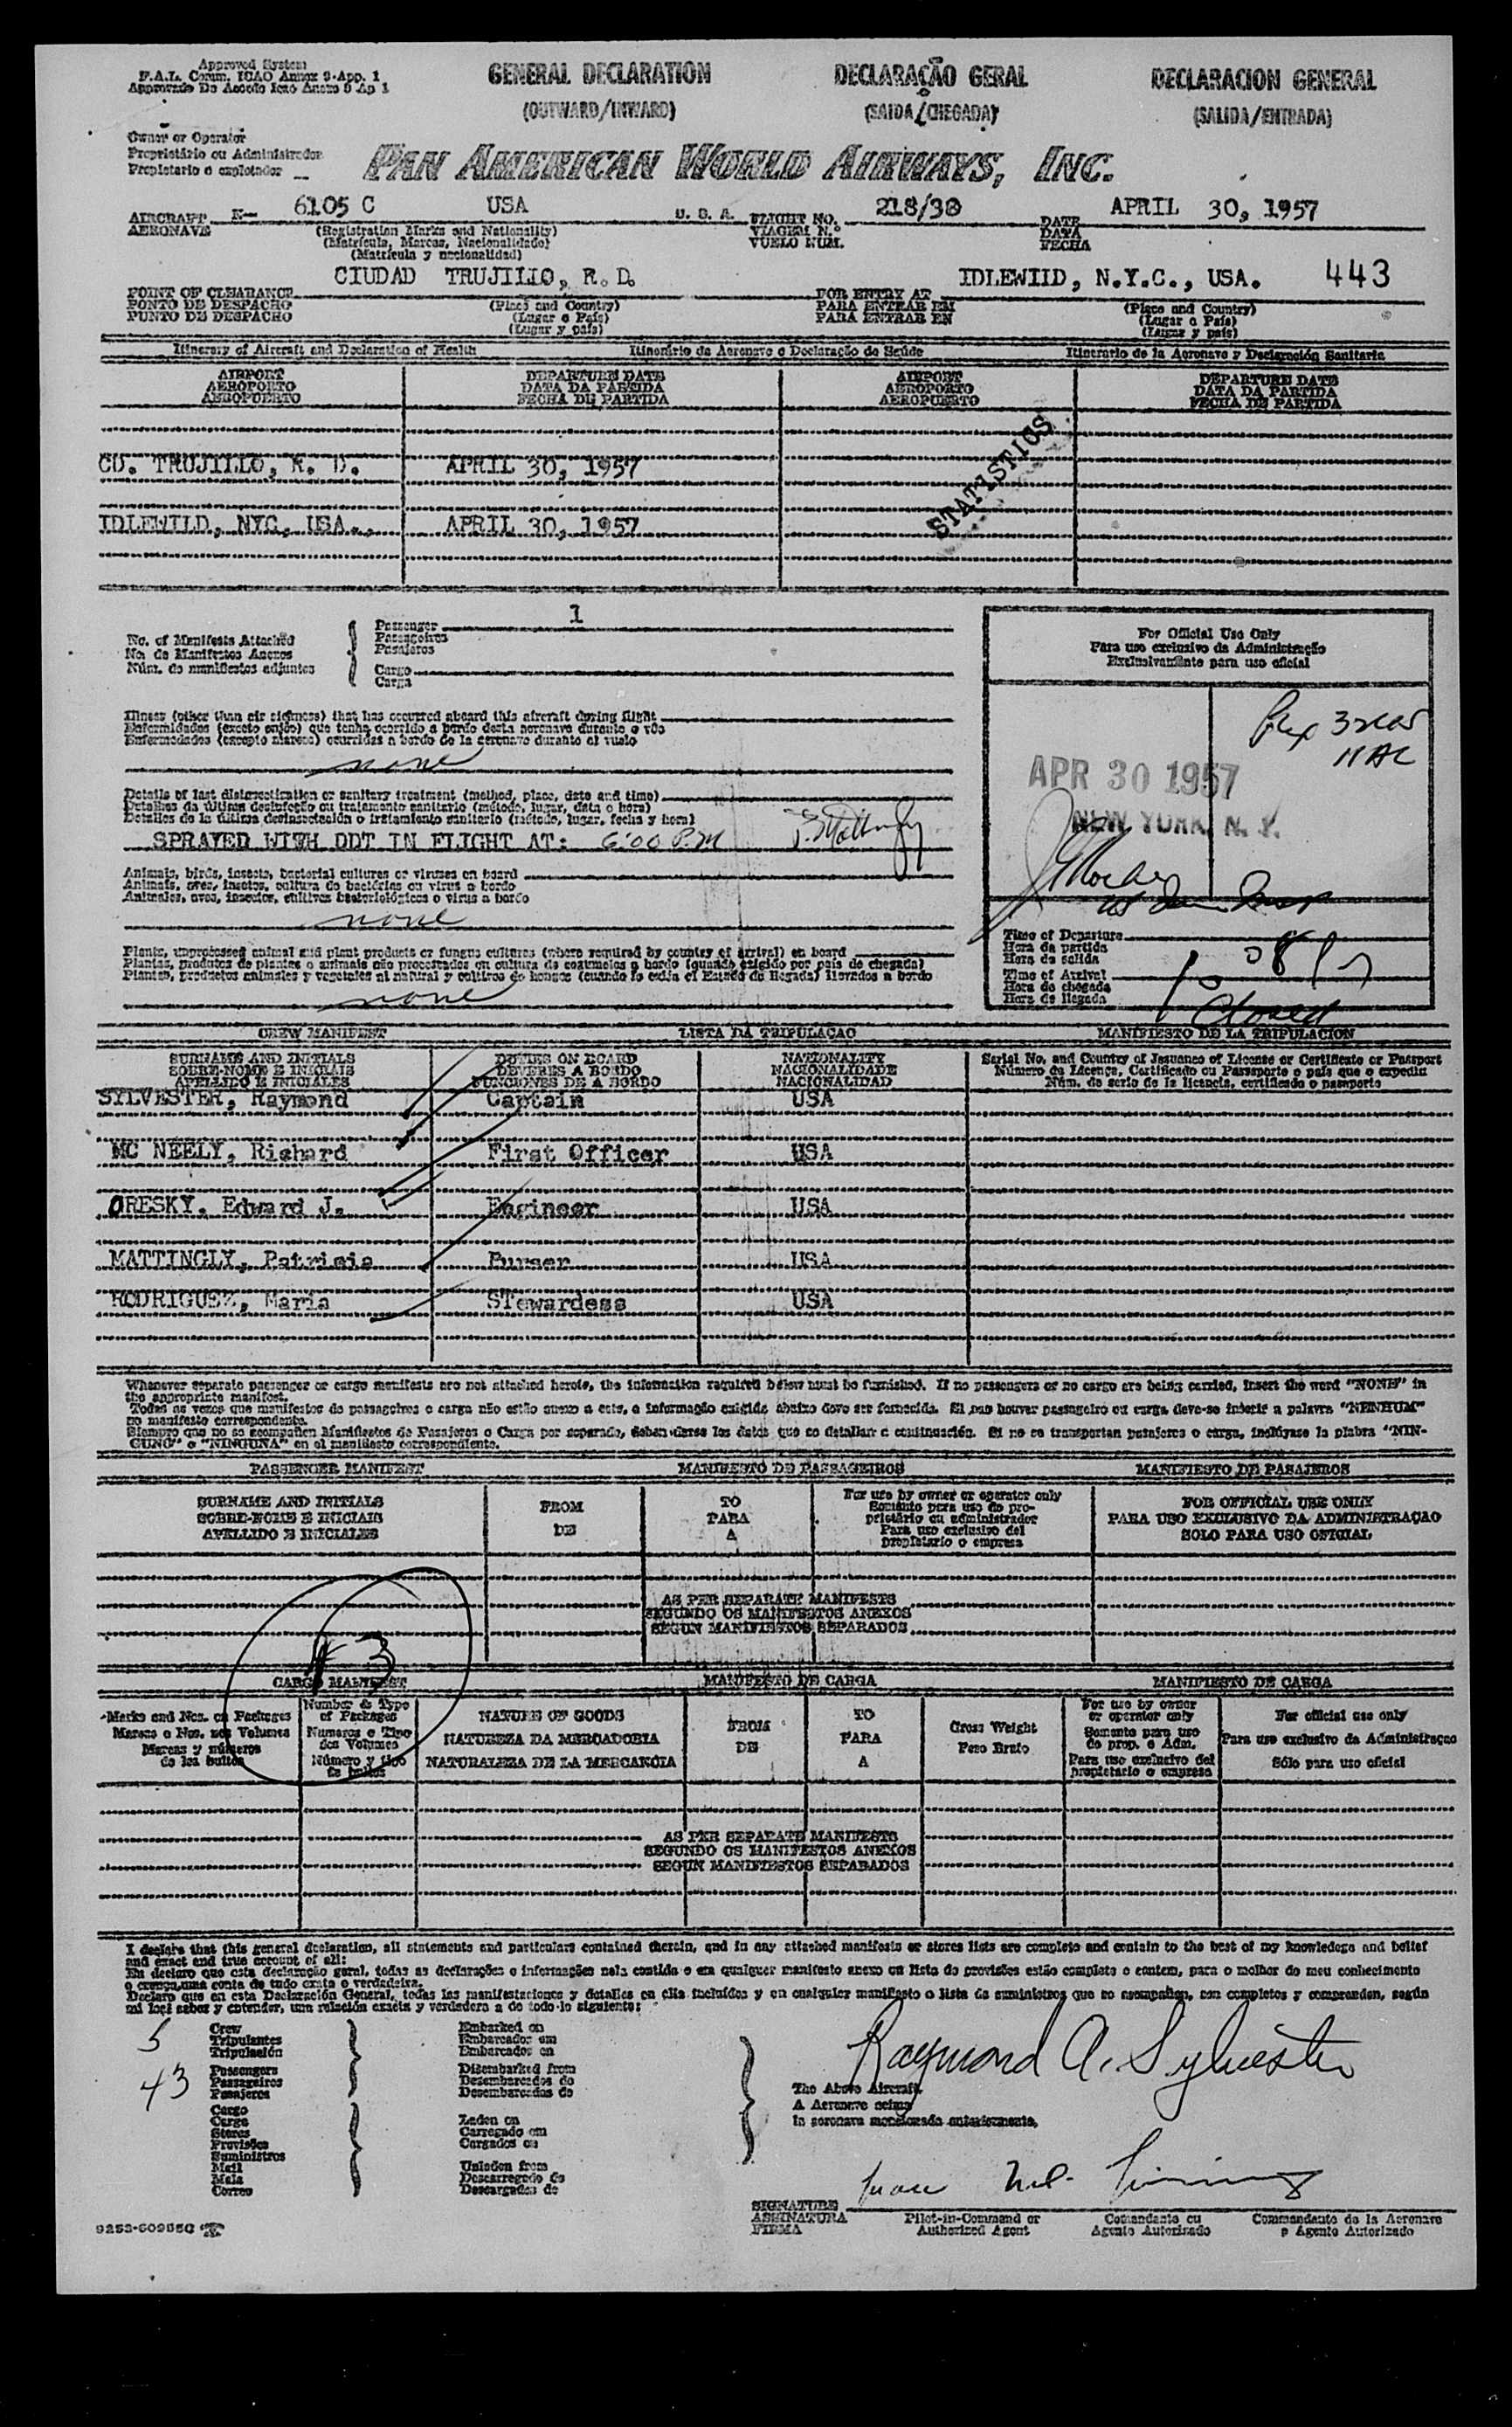 Approved System
F.A.L. Comm. ICAO Annex 9-App. 1
GENERAL DECLARATION DECLARAÇÃO GERAL DECLARACION GENERAL
(OUTWARD/INWARD) (SAIDA/CHEGADA) (SALIDA/ENTRADA)
Owner or Operator
Proprietário ou Administrador
Propietario o explotador
PAN AMERICAN WORLD AIRWAYS, INC.
AIRCRAFT N- 6105 C USA U. S. A. FLIGHT NO. 218/30 DATE APRIL 30, 1957
AERONAVE (Registration Marks and Nationality) VIAGEM N.º DATA
(Matrícula, Marcas, Nacionalidade) VUELO NUM. FECHA
(Matrícula y nacionalidad)
CIUDAD TRUJILLO, R. D. IDLEWILD, N.Y.C., USA. 443
POINT OF CLEARANCE FOR ENTRY AT
PONTO DE DESPACHO (Place and Country) PARA ENTRAR EM (Place and Country)
PUNTO DE DESPACHO (Lugar e País) PARA ENTRAR EN (Lugar e País)
(Lugar y país) (Lugar y país)
Itinerary of Aircraft and Declaration of Health Itinerário da Aeronave e Declaração de Saúde Itinerario de la Aeronave y Declaración Sanitaria
AIRPORT DEPARTURE DATE AIRPORT DEPARTURE DATE
AEROPORTO DATA DA PARTIDA AEROPORTO DATA DA PARTIDA
AEROPUERTO FECHA DE PARTIDA AEROPUERTO FECHA DE PARTIDA
STATISTICS
CD. TRUJILLO, R. D. APRIL 30, 1957
IDLEWILD, NYC, USA., APRIL 30, 1957
No. of Manifests Attached Passenger 1
No. de Manifestos Anexos Passageiros
Núm. de manifiestos adjuntos Pasajeros
Cargo
Carga
For Official Use Only
Para uso exclusivo da Administração
Exclusivamente para uso oficial
Illness (other than air sickness) that has occurred aboard this aircraft during flight
Enfermidades (exceto enjôo) que tenha ocorrido a bordo desta aeronave durante o vôo
Enfermedades (excepto mareos) ocurridas a bordo de la aeronave durante el vuelo
none
APR 30 1957
NEW YORK, N. Y.
Details of last disinsectization or sanitary treatment (method, place, date and time)
Detalhes da última desinfeção ou tratamento sanitário (método, lugar, data e hora)
Detalles de la última desinsectación o tratamiento sanitario (método, lugar, fecha y hora)
SPRAYED WITH DDT IN FLIGHT AT: 6:00 P.M
Animals, birds, insects, bacterial cultures or viruses on board
Animais, aves, insetos, cultura de bactérias ou virus a bordo
Animales, aves, insectos, cultivos bacteriológicos o virus a bordo
none
Plants, unprocessed animal and plant products or fungus cultures (where required by country of arrival) on board
Plantas, produtos de plantas e animais não processados ou cultura de cogumelos a bordo (quando exigido por país de chegada)
Plantas, productos animales y vegetales al natural y cultivos de hongos (cuando lo exija el Estado de llegada) llevados a bordo
none
Time of Departure
Hora da partida
Hora de salida
Time of Arrival
Hora da chegada
Hora de llegada
Closed
CREW MANIFEST LISTA DA TRIPULAÇAO MANIFIESTO DE LA TRIPULACION
SURNAME AND INITIALS DUTIES ON BOARD NATIONALITY Serial No. and Country of Issuance of License or Certificate or Passport
SOBRE-NOME E INICIAIS DEVERES A BORDO NACIONALIDADE Número da Licença, Certificado ou Passaporte e país que o expediu
APELLIDO E INICIALES FUNCIONES DE A BORDO NACIONALIDAD Núm. de serie de la licencia, certificado o pasaporte
SYLVESTER, Raymond Captain USA
MC NEELY, Richard First Officer USA
ORESKY. Edward J. Engineer USA
MATTINGLY, Patricia Purser USA
RODRIGUEZ, Maria STewardess USA
Whenever separate passenger or cargo manifests are not attached hereto, the information required below must be furnished. If no passengers or no cargo are being carried, insert the word "NONE" in
the appropriate manifest.
Todas as vezes que manifestos de passageiros e carga não estão anexo a este, a informação exigida abaixo deve ser fornecida. Si nao houver passageiro ou carga, deve-se inserir a palavra "NENHUM"
no manifesto correspondente.
Siempre que no se acompañen Manifiestos de Pasajeros o Carga por separado, deben darse los datos que se detallan a continuación. Si no se transportan pasajeros o carga, inclúyase la plabra "NIN-
GUNO" o "NINGUNA" en el manifiesto correspondiente.
PASSENGER MANIFEST MANIFESTO DE PASSAGEIROS MANIFIESTO DE PASAJEROS
SURNAME AND INITIALS FROM TO For use by owner or operator only FOR OFFICIAL USE ONLY
SOBRE-NOME E INICIAIS DE PARA Somente para uso do pro- PARA USO EXCLUSIVO DA ADMINISTRAÇAO
APELLIDO E INICIALES A prietário ou administrador SOLO PARA USO OFICIAL
Para uso exclusivo del
propietario o empresa
AS PER SEPARATE MANIFESTS
SEGUNDO OS MANIFESTOS ANEXOS
SEGUN MANIFIESTOS SEPARADOS
# 3
CARGO MANIFEST MANIFESTO DE CARGA MANIFIESTO DE CARGA
Marks and Nos. on Packages Number & Type of Packages NATURE OF GOODS FROM TO Gross Weight For use by owner or operator only For official use only
Marcas e Nos. nos Volumes Numeros e Tipo dos Volumes NATUREZA DA MERCADORIA DE PARA Peso Bruto Somente para uso do prop. e Adm. Para uso exclusivo da Administraçao
Marcas y números de los bultos Número y tipo de bultos NATURALEZA DE LA MERCANCIA A Para uso exclusivo del propietario o empresa Sólo para uso oficial
AS PER SEPARATE MANIFESTS
SEGUNDO OS MANIFESTOS ANEXOS
SEGUN MANIFIESTOS SEPARADOS
I declare that this general declaration, all statements and particulars contained therein, and in any attached manifests or stores lists are complete and contain to the best of my knowledege and belief
and exact and true account of all:
Eu declaro que esta declaração geral, todas as declarações e informações nela contida e em qualquer manifesto anexo ou lista de provisões estão completo e contem, para o melhor do meu conhecimento
e crença, uma conta de tudo exato e verdadeira.
Declaro que en esta Declaración General, todas las manifestaciones y detalles en ella incluídos y en cualquier manifiesto o lista de suministros que se acompañen, son completos y comprenden, según
mi leal saber y entender, una relación exacta y verdadera a de todo lo siguiente:
5 Crew Embarked on
Tripulantes Embarcados em
Tripulación Embarcados en
43 Passengers Disembarked from
Passageiros Desembarcados do
Pasajeros Desembarcados de
Raymond A. Sylvester
The Above Aircraft.
A Aeronave acima
la aeronave mencionada anteriormente.
Cargo
Carga Laden on
Stores Carregado em
Provisões Cargados en
Suministros
Mail Unladen from
Mala Descarregado do
Correo Descargados de
SIGNATURE
ASSINATURA Pilot-in-Command or Comandante ou Commandante de la Aeronave
FIRMA Authorized Agent Agente Autorizado o Agente Autorizado